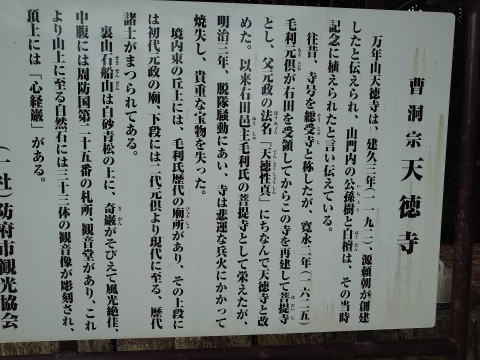 曹洞宗 天徳寺
万年山天徳寺は、建久三年(一一九二)、源頼朝が創建
したと伝えられ、山門内の公孫樹と白檀は、その当時
記念に植えられたと言い伝えている。
往昔、寺号を総受寺と称したが、寛永三年(一六二五)
毛利元倶が右田を受領してからこの寺を再建して菩提寺
とし、父元政の法名「天徳性真」にちなんで天徳寺と改
めた。以来右田邑主毛利氏の菩提寺として栄えたが、
明治三年、脱隊騒動にあい、寺は悲運な兵火にかかって
焼失し、貴重な宝物を失った。
境内東の丘上には、毛利氏歴代の廟所があり、その上段に
は初代元政の廟、下段には二代元倶より現代に至る、歴代
諸士がまつられてある。
裏山石船山は白砂青松の上に、奇巌がそびえて風光絶佳、
中腹には周防国第二十五番の札所、観音堂があり、これ
より山上に至る自然石には三十三体の観音像が彫刻され、
頂上には「心経巌」がある。
(一社)防府市観光協会